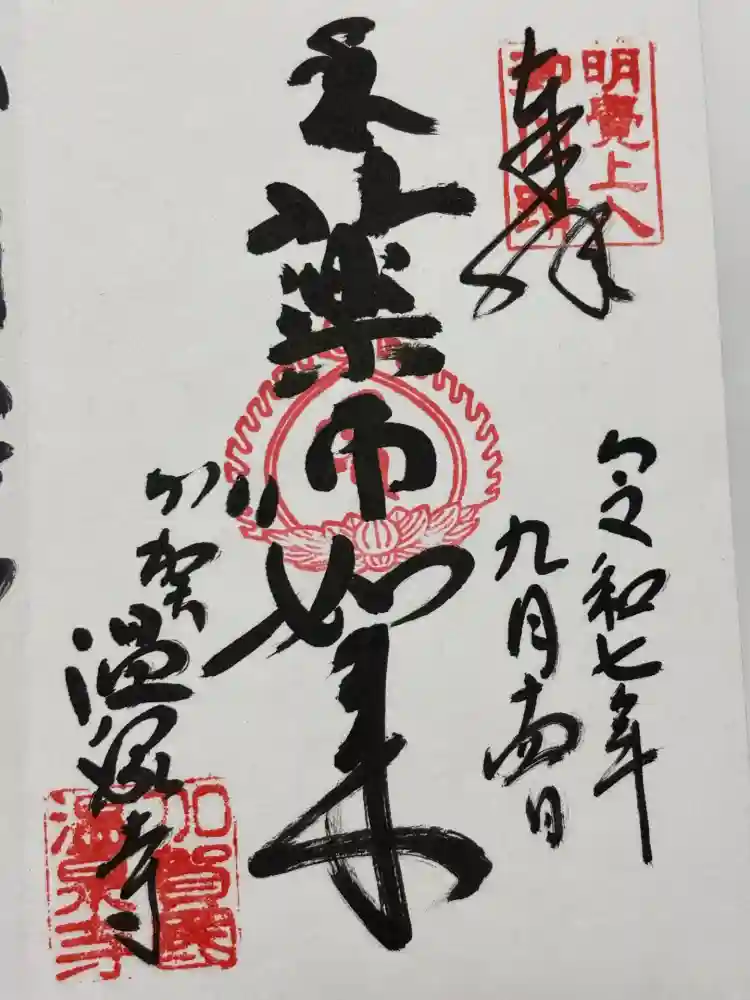 明覺上人
奉拝
令和七年
九月十四日
薬師如来
加賀
温泉寺
加賀國
温泉寺